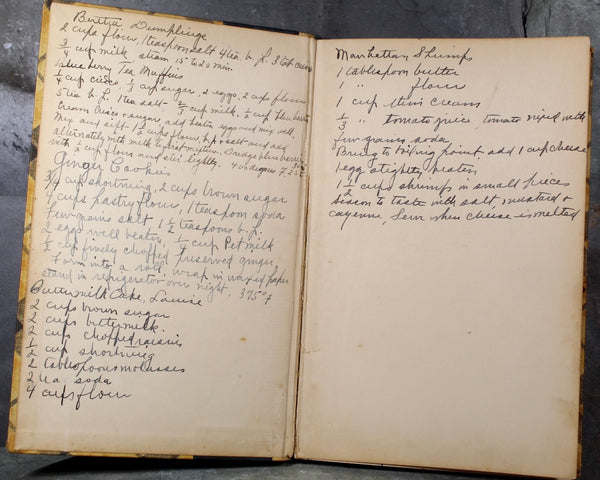 Bertha Dumplings
2 cups flour, 1 teaspoon salt 4 tea b.p. 3 tab
3/4 cup milk, steam 15 to 20 min.
Blueberry Tea Muffins
1/4 cup crisco, 1/3 cup sugar, 2 eggs, 2 cups flour
5 tea b.p. 1 tea salt - 2/3 cup milk, 1/2 cup blueberries
Cream crisco + sugar, add beaten eggs and mix well
Mix and sift 1 1/2 cups flour, b.p + salt and add
alternately with milk to first mixture. Dredge blueberries
with 1/2 cup flour and stir lightly.
Ginger Cookies
3/4 cup shortning, 2 cups brown sugar
cups pastry flour, 1 teaspoon soda
Few grains salt 1 1/2 teaspoons b.p.
2 eggs well beaten, 1/4 cup Pet milk
1/2 cup finely chopped preserved ginger.
Form into a roll, wrap in waxed paper
stand in refrigerator over night. 375° F
Buttermilk Cake, Louise
2 cups brown sugar
2 cups buttermilk.
2 cups chopped raisins
1/2 cup shortning
2 tablespoons molasses
2 tea soda
4 cups flour
Manhattan Shrimps
1 tablespoon butter
1 " flour
1 cup thin cream
1/3 " tomato juice, tomato mixed with
few grains soda
Bring to boiling point, add 1 cup cheese
1 egg slightly beaten
1 1/2 cups shrimps in small pieces
Season to taste with salt, mustard +
cayenne, Serve when cheese is melted